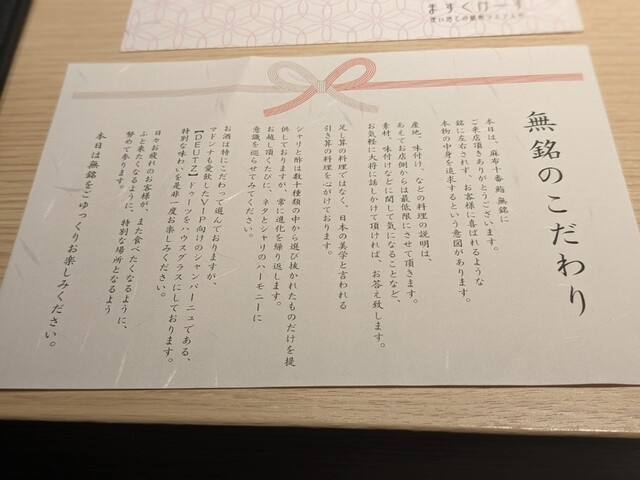 ますくけーす
無銘のこだわり
本日は、麻布十番 鮨 無銘に
ご来店頂きありがとうございます。
銘に左右されず、お客様に喜ばれるような
本物の中身を追求するという意図があります。
産地、味付け、などの料理の説明は、
あえてお店側からは最低限にさせて頂きます。
素材、味付けなどに関して気になることなど、
お気軽に大将に話しかけて頂ければ、お答え致します。
足し算の料理ではなく、日本の美学と言われる
引き算の料理を心がけております。
シャリと酢は数十種類の中から選び抜かれたものだけを提
供しておりますが、常に進化を繰り返します。
お越し頂くたびに、ネタとシャリのハーモニーに
意識を巡らせてみてください。
お酒は特にこだわって選んでおりますが、
マドンナも愛飲したVIP向けのシャンパーニュである、
【DEUTZ】ドゥーツをハウスグラスにしております。
特別な味わいを是非一度お楽しみください。
日々お疲れのお客様が、また食べたくなるように、
ふと来たくなるように、特別な場所となるよう
努めて参ります。
本日は無銘をごゆっくりお楽しみください。